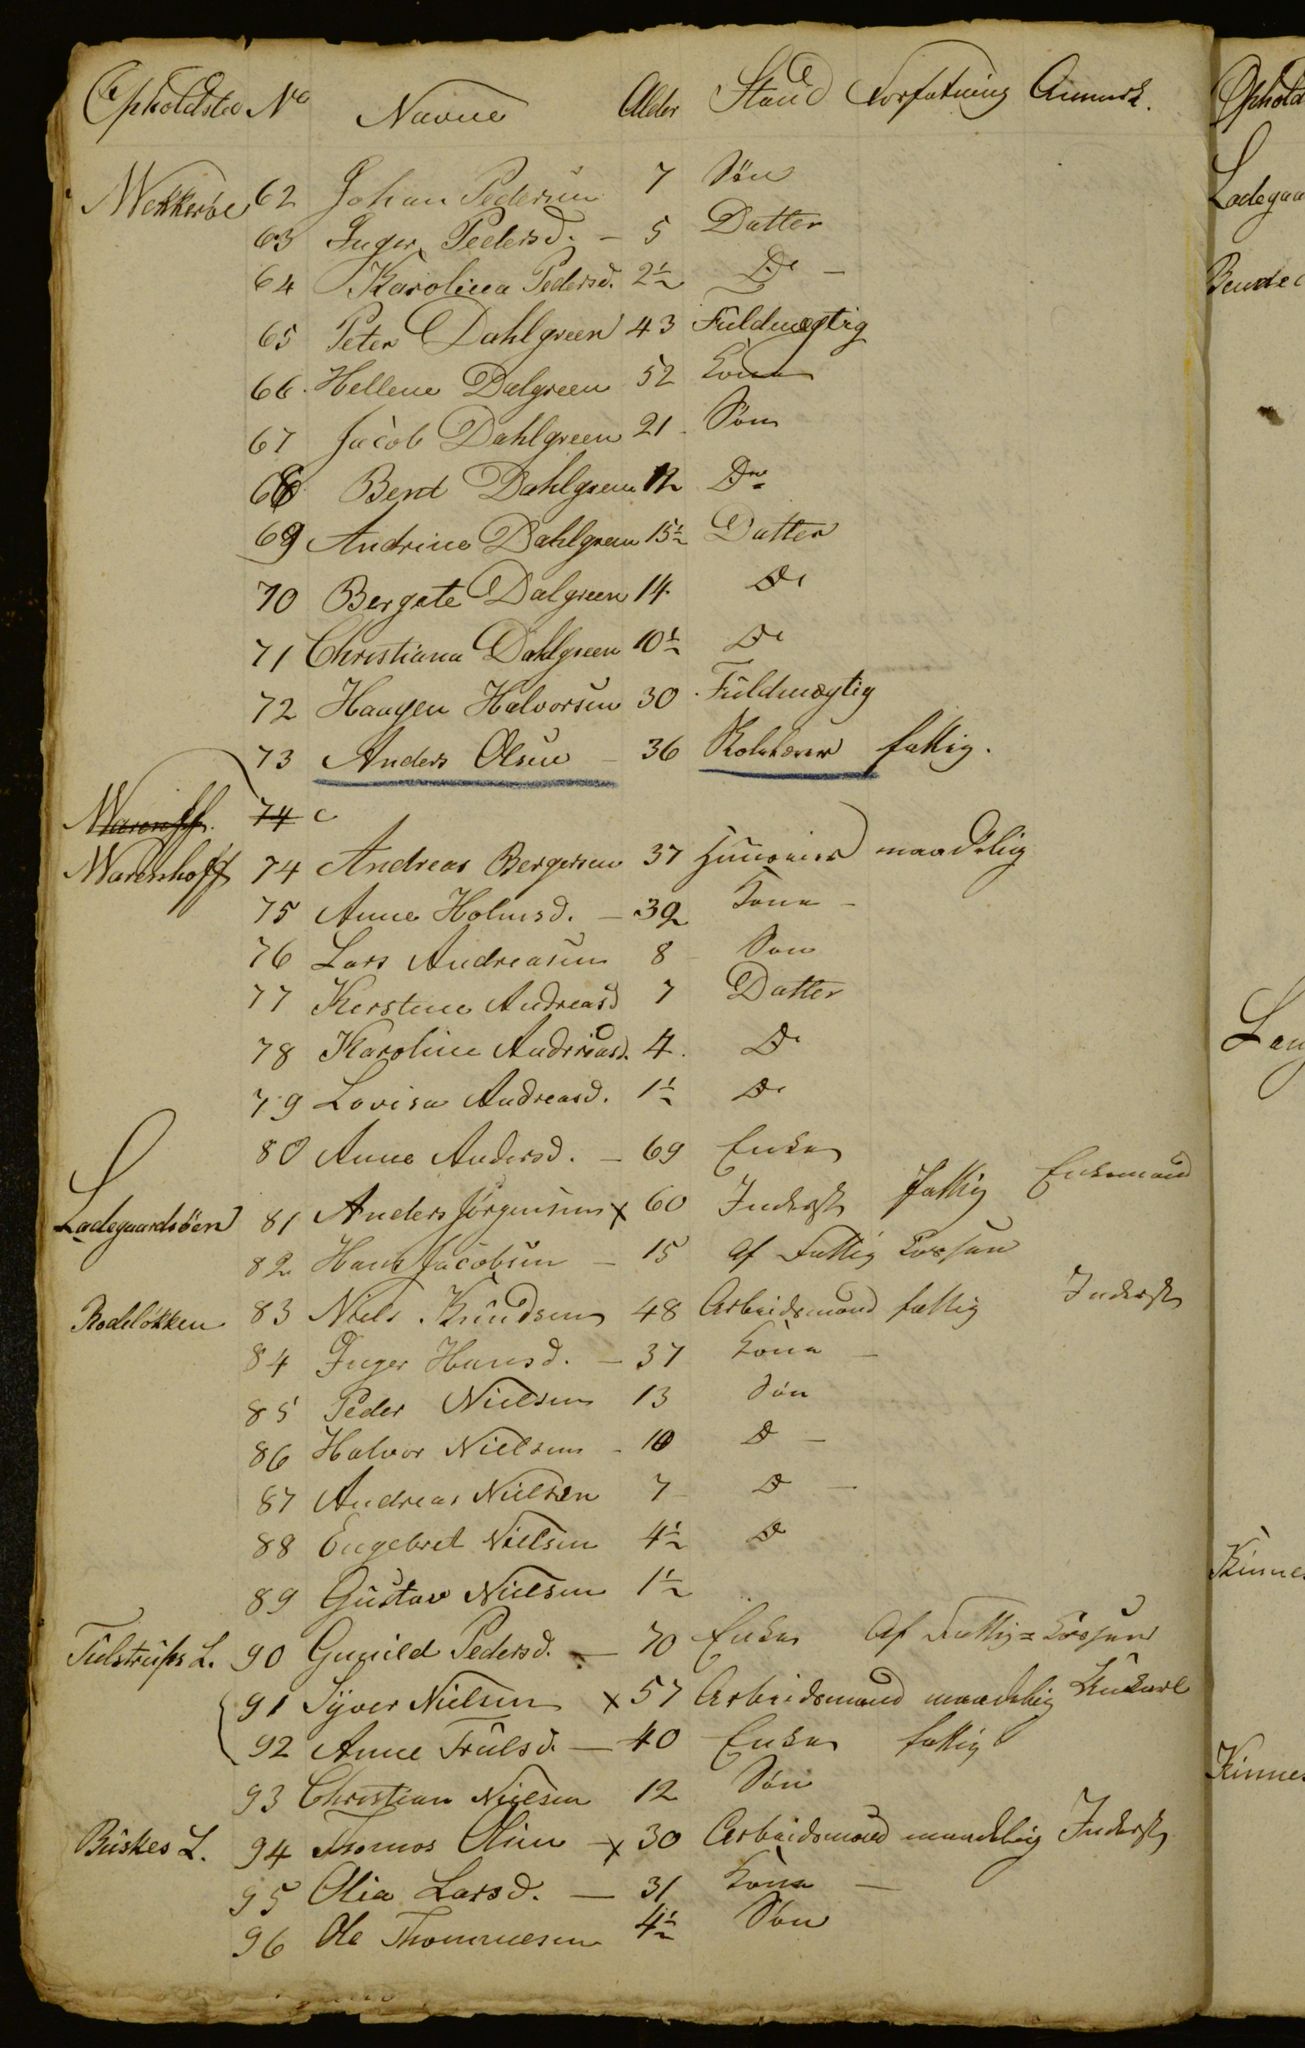 Opholdsted No Navne Alder Stand Forfatning Anmerk.
Wekkerøe 62 Johan Pedersen 7 Søn
63 Inger Pedersd. – 5 Datter
64 Karolina Pedersd. 2½ Do –
65 Peter Dahlgreen 43 Fuldmægtig
66 Hellene Dalgreen 52 Kone
67 Jacob Dahlgreen 21 Søn
68 Bent Dahlgreen 12 Do
69 Andrine Dahlgreen 15½ Datter
70 Bergete Dalgreen 14 Do
71 Christiana Dahlgreen 10½ Do
72 Haagen Halvorsen 30 Fuldmægtig
73 Anders Olsen – 36 fattig.
74
Warenshoff 74 Andreas Bergersen 37 maadelig
75 Anne Holmsd. – 39 Kone –
76 Lars Andreasen 8 Søn
77 Kerstine Andreasd 7 Datter
78 Karoline Andreasd. 4. Do
79 Lovisa Andreasd. 1½ Do
80 Anne Andersd. – 69 Enke
Ladegaardsøen 81 Anders Jørgensen x 60 Inderst fattig Enkemand
82 Hans Jacobsen – 15 af Fattig Kassen
Rodeløkken 83 Niels Knudsen 48 Arbeidsmand fattig Inderst
84 Inger Hansd. – 37 Kone –
85 Peder Nielsen 13 Søn
86 Halvor Nielsen – 10 D –
87 Andreas Nielsen 7 D –
88 Engebret Nielsen 4½ D
89 Gustav Nielsen 1½
Tulstrups L. 90 Gunild Pedersd. – 70 Enke Af Fattig= Kassen
91 Syver Nielsen x 57 Arbeidsmand maadelig
92 Anne Trulsd. – 40 Enke fattig
93 Christian Nielsen 12 Søn
Buskes L. 94 Thomas Olsen – x 30 Arbeidsmand maadelig Inderst
95 Olia Larsd. – 31 Kone –
96 Ole Thommesen 4½ Søn
Ophold
Ladegaa
Lang
Kinnes
Kinnes